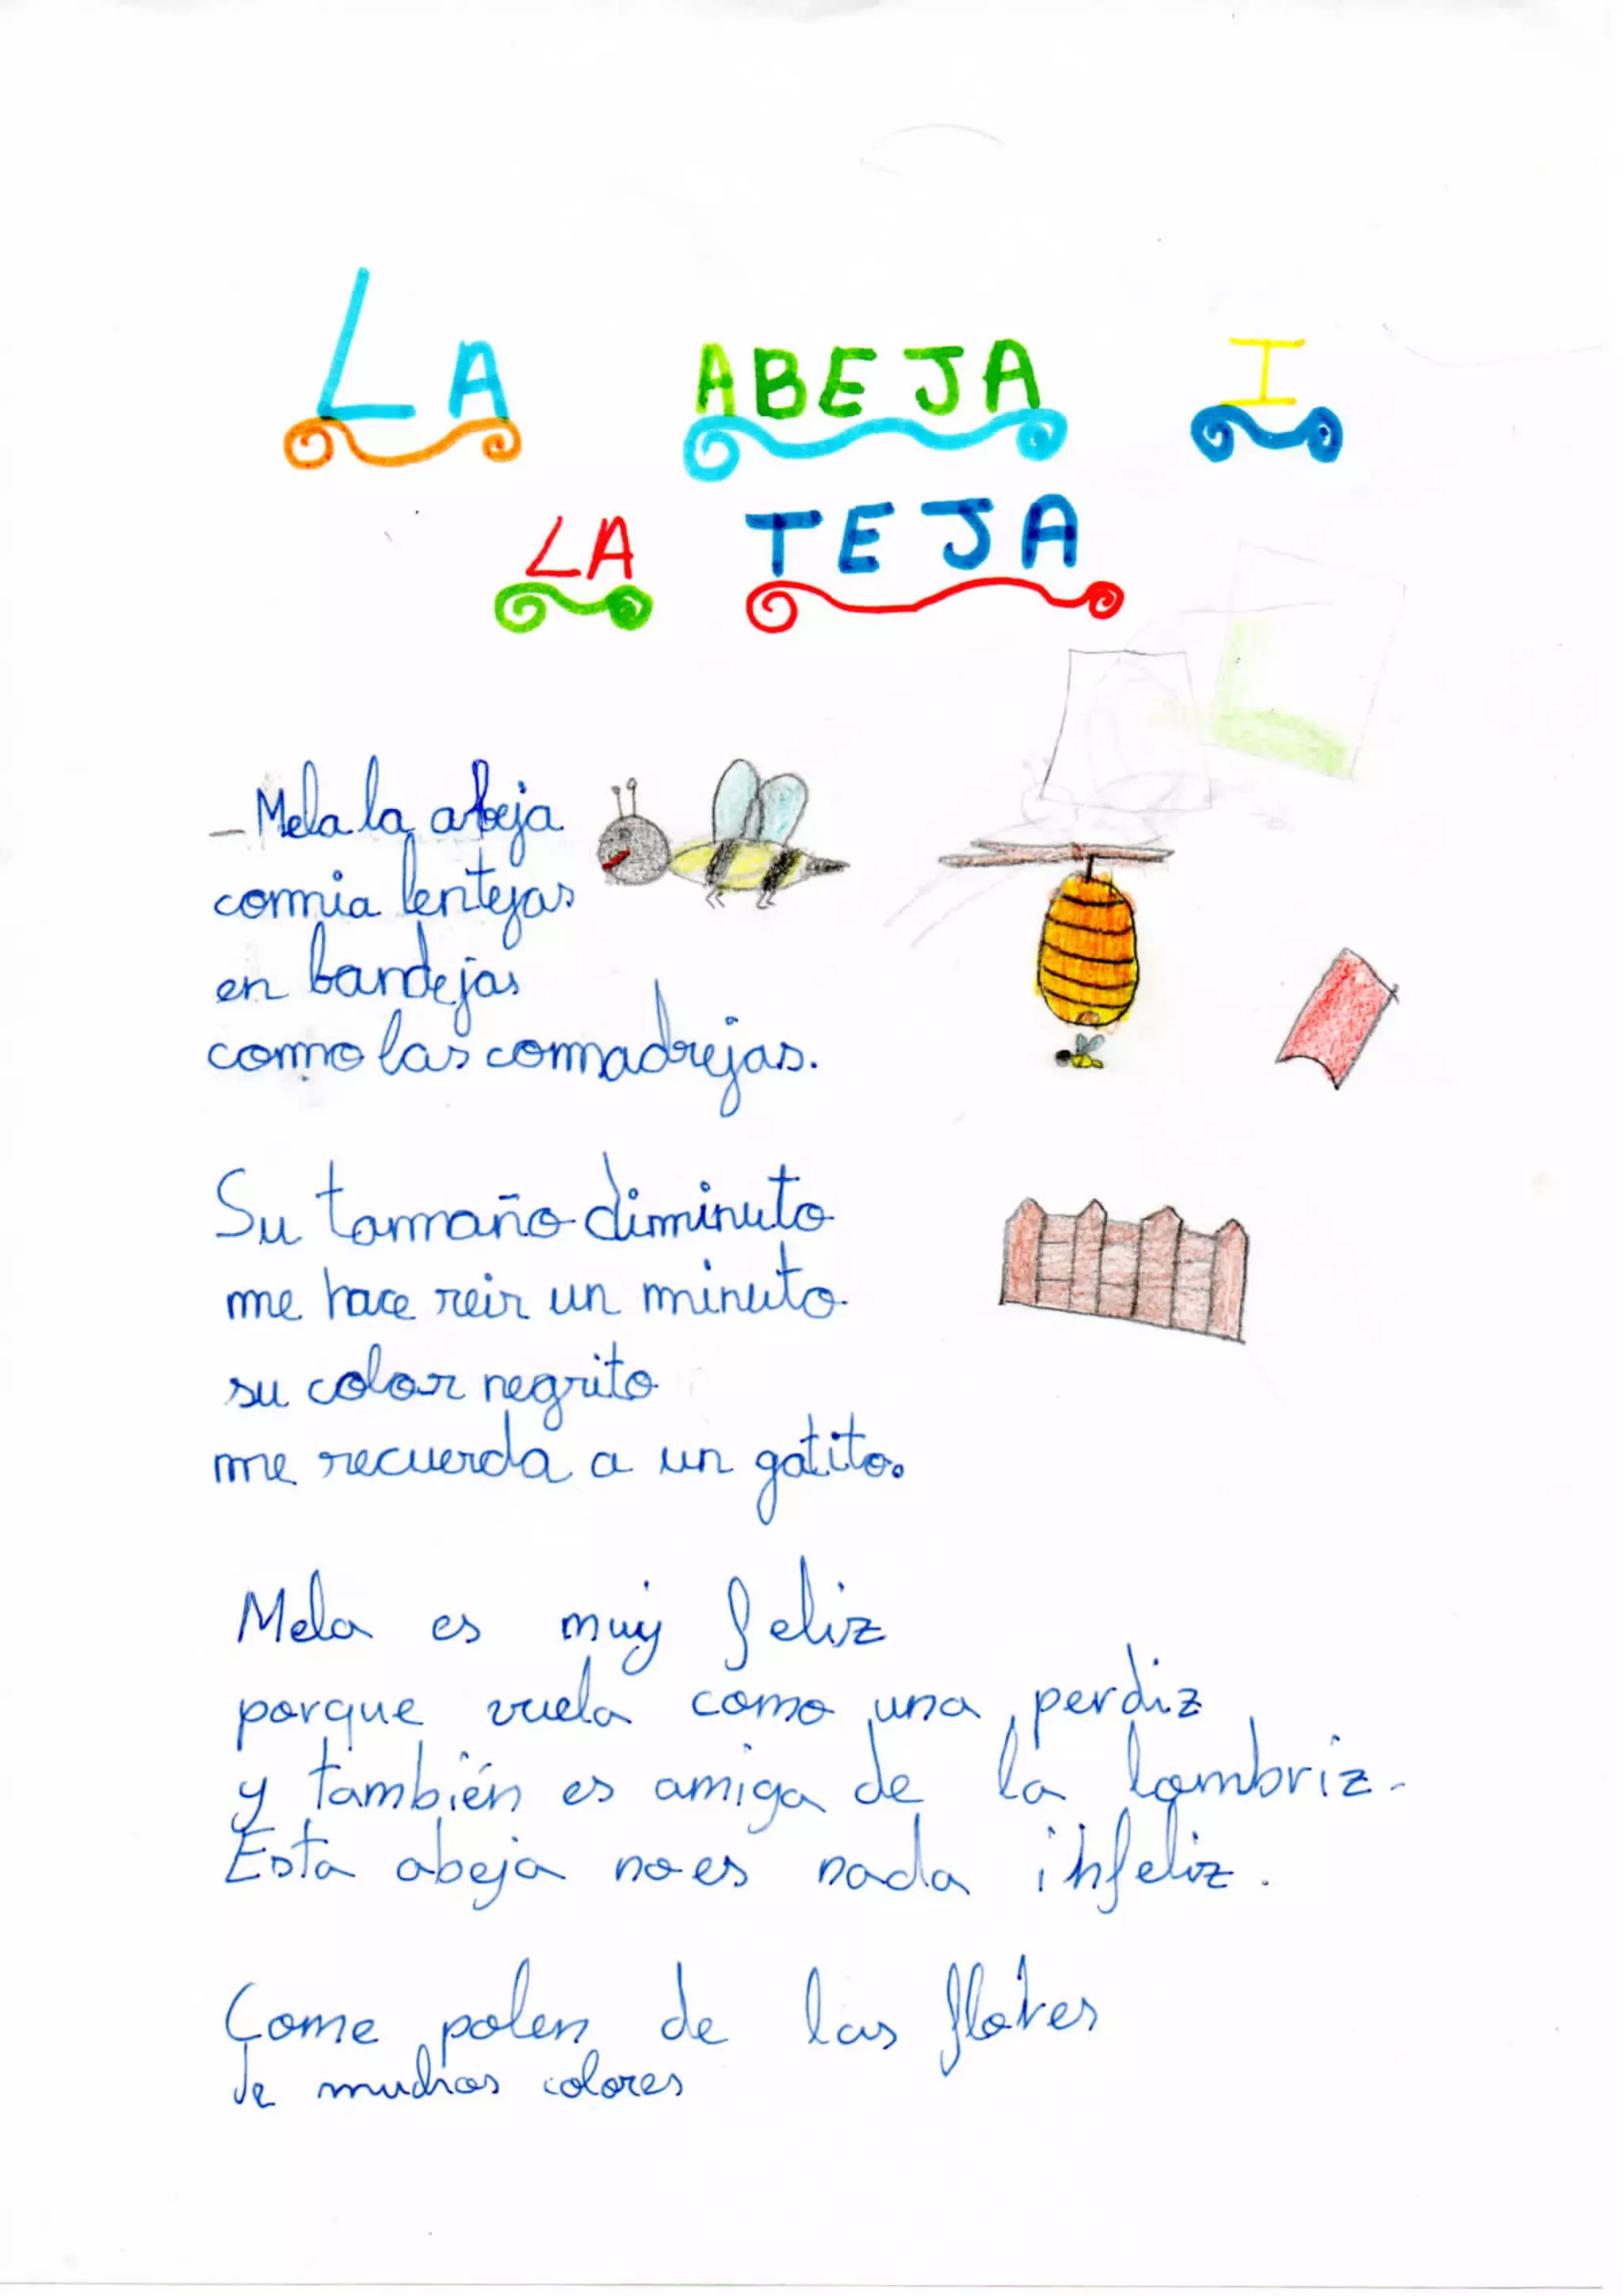 LA ABEJA I
LA TEJA
- Mela la abeja
comia lentejas
en bandejas
como las comadrejas.
Su tamaño diminuto
me hace reir un minuto
su color negrito
me recuerda a un gatito.
Mela es muy feliz
porque vuela como una perdiz
y también es amiga de la lombriz.
Esta abeja no es nada infeliz.
Come polen de las flores
de muchos colores